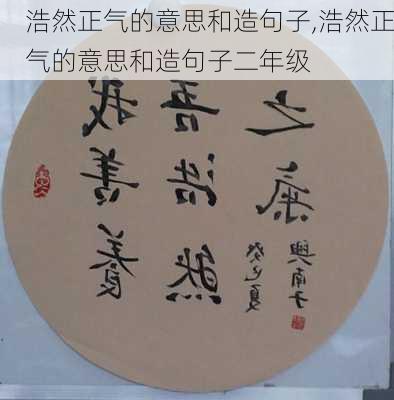 浩然正气的意思和造句子,浩然正
气的意思和造句子二年级
我善養
吾浩然
之氣
癸巳夏
興南子